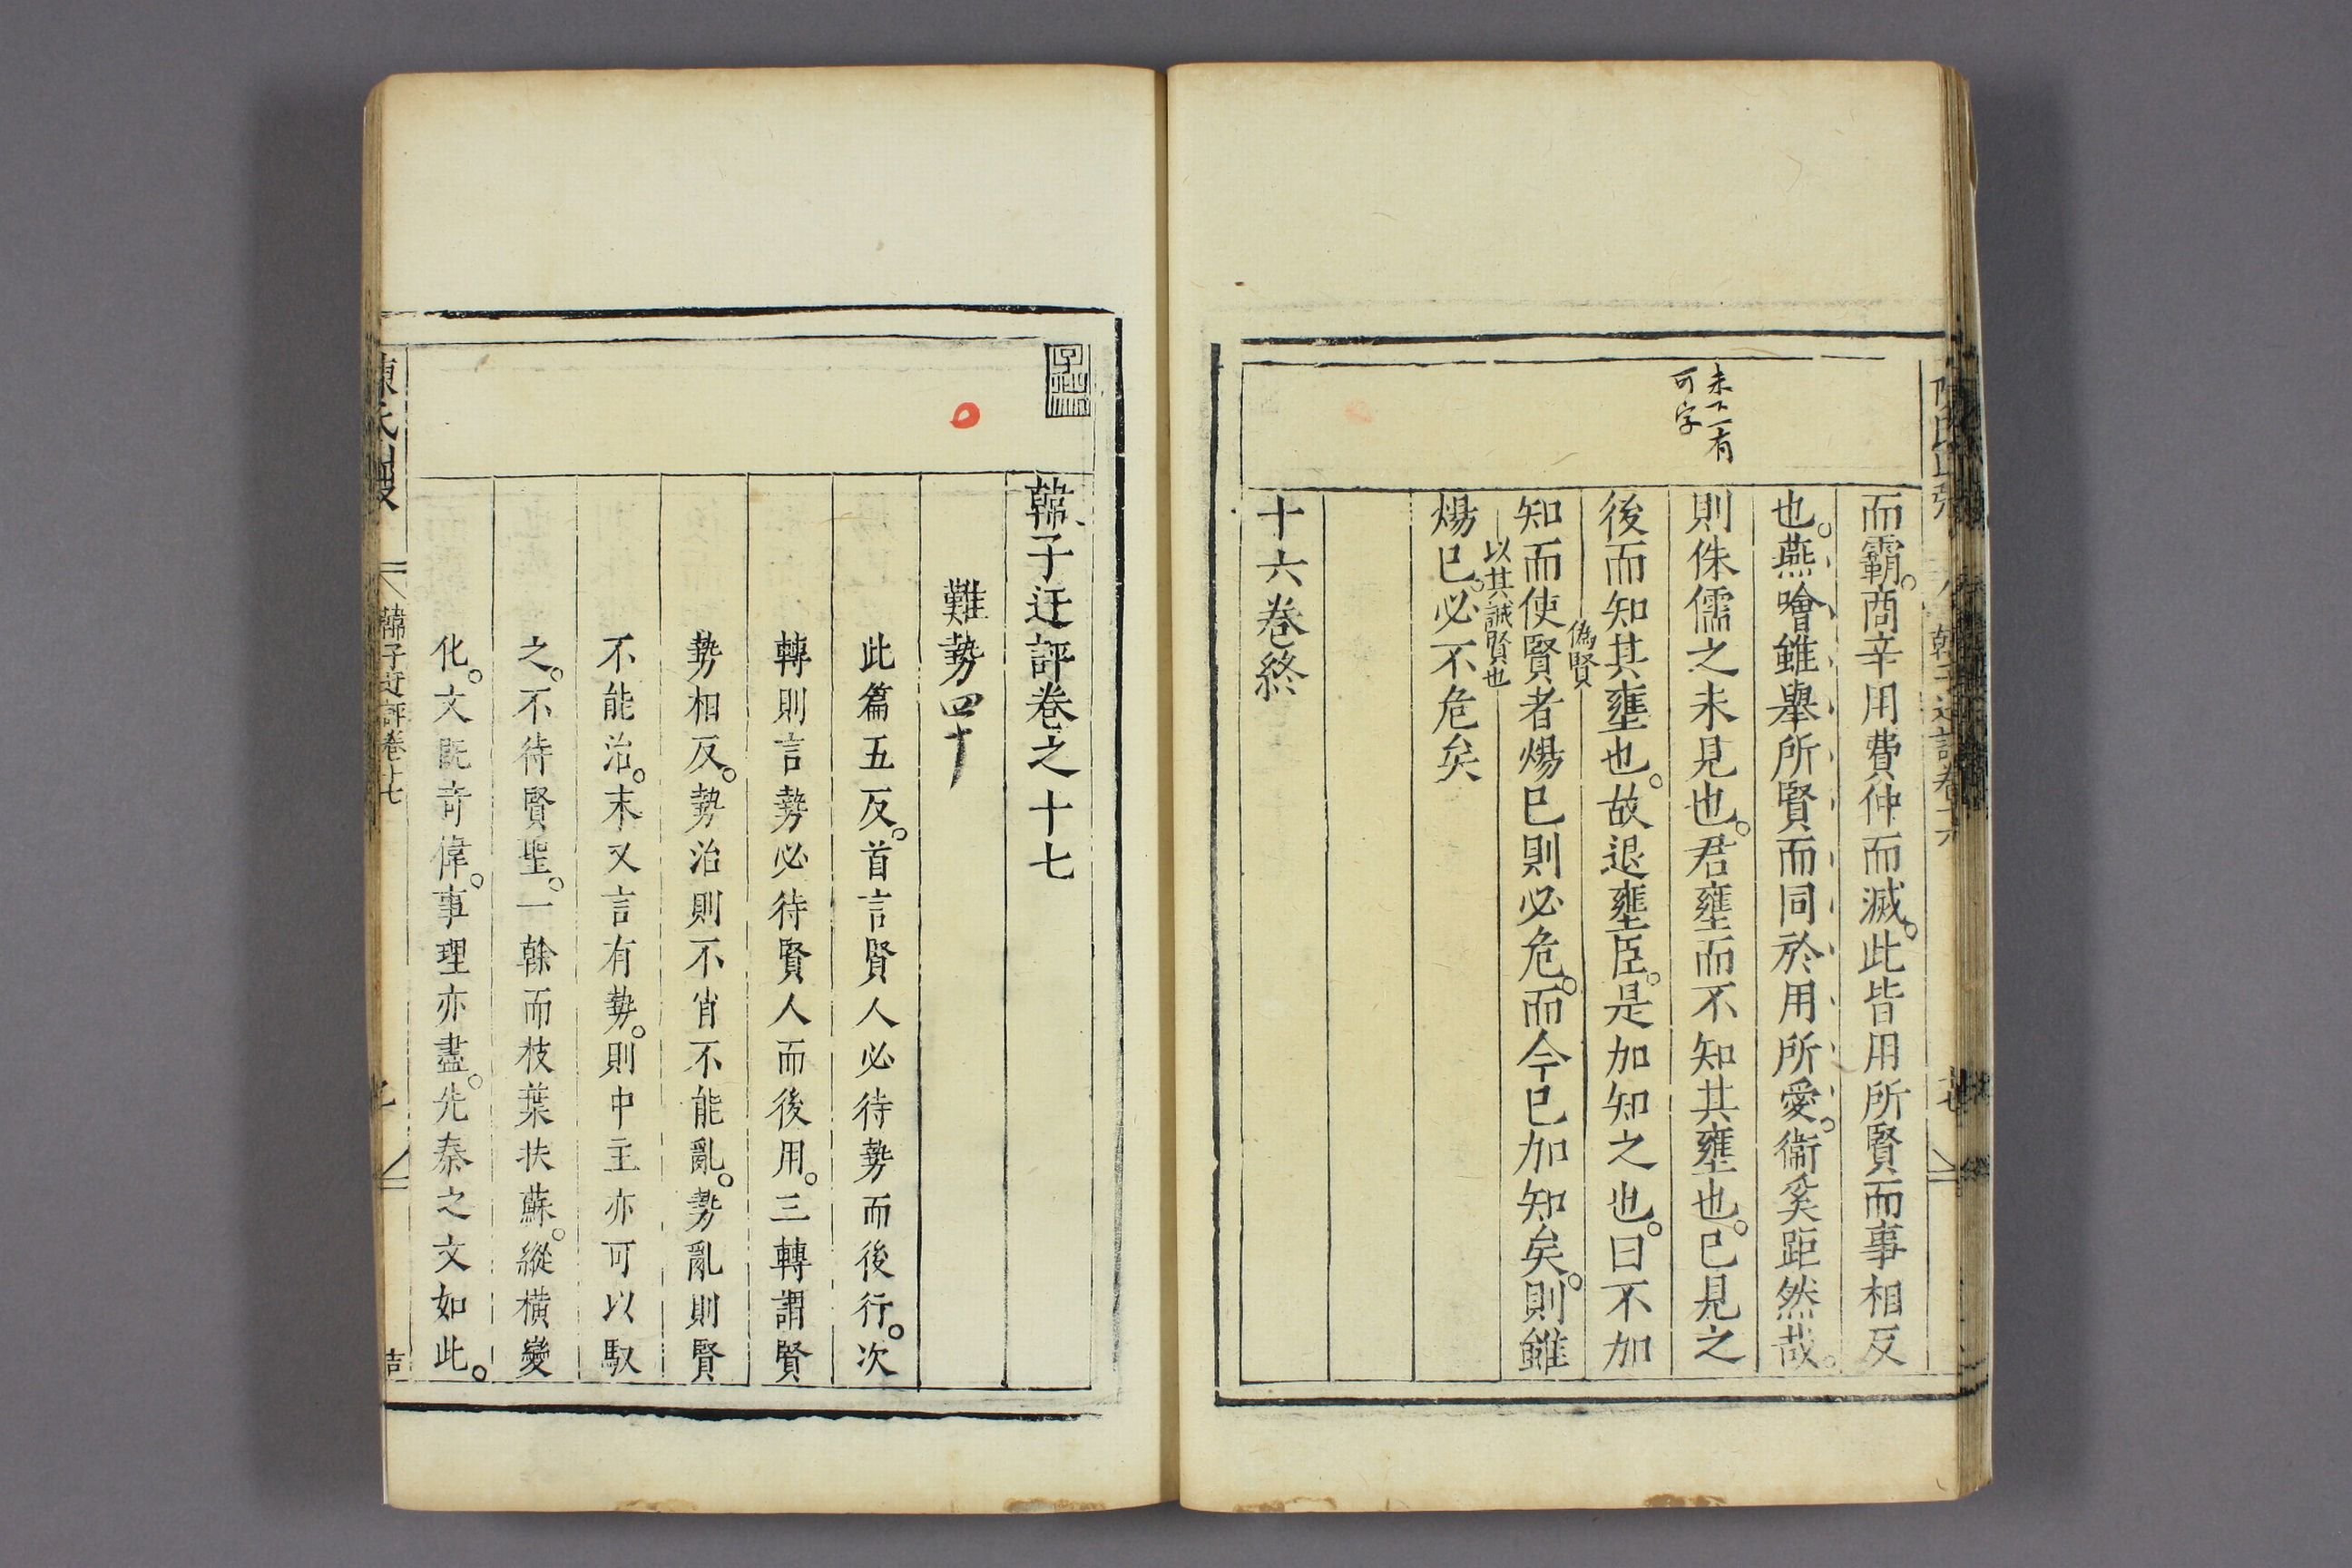 未下一有
可字
而霸。商辛用費仲而滅。此皆用所賢而事相反
也。燕噲雖舉所賢而同於用所愛。衛奚距然哉。
則侏儒之未見也。君壅而不知其壅也。已見之
後而知其壅也。故退壅臣。是加知之也。曰不加
偽賢
知而使賢者煬已則必危。而今已加知矣。則雖
以其誠賢也
煬已。必不危矣
十六卷終
韓子迂評卷之十七
難勢四十
此篇五反。首言賢人必待勢而後行。次
轉則言勢必待賢人而後用。三轉謂賢
勢相反。勢治則不肖不能亂。勢亂則賢
不能治。末又言有勢。則中主亦可以馭
之。不待賢聖。一榦而枝葉扶蘇。縱橫變
化。文既奇偉。事理亦盡。先秦之文如此。
韓子迂評卷十七